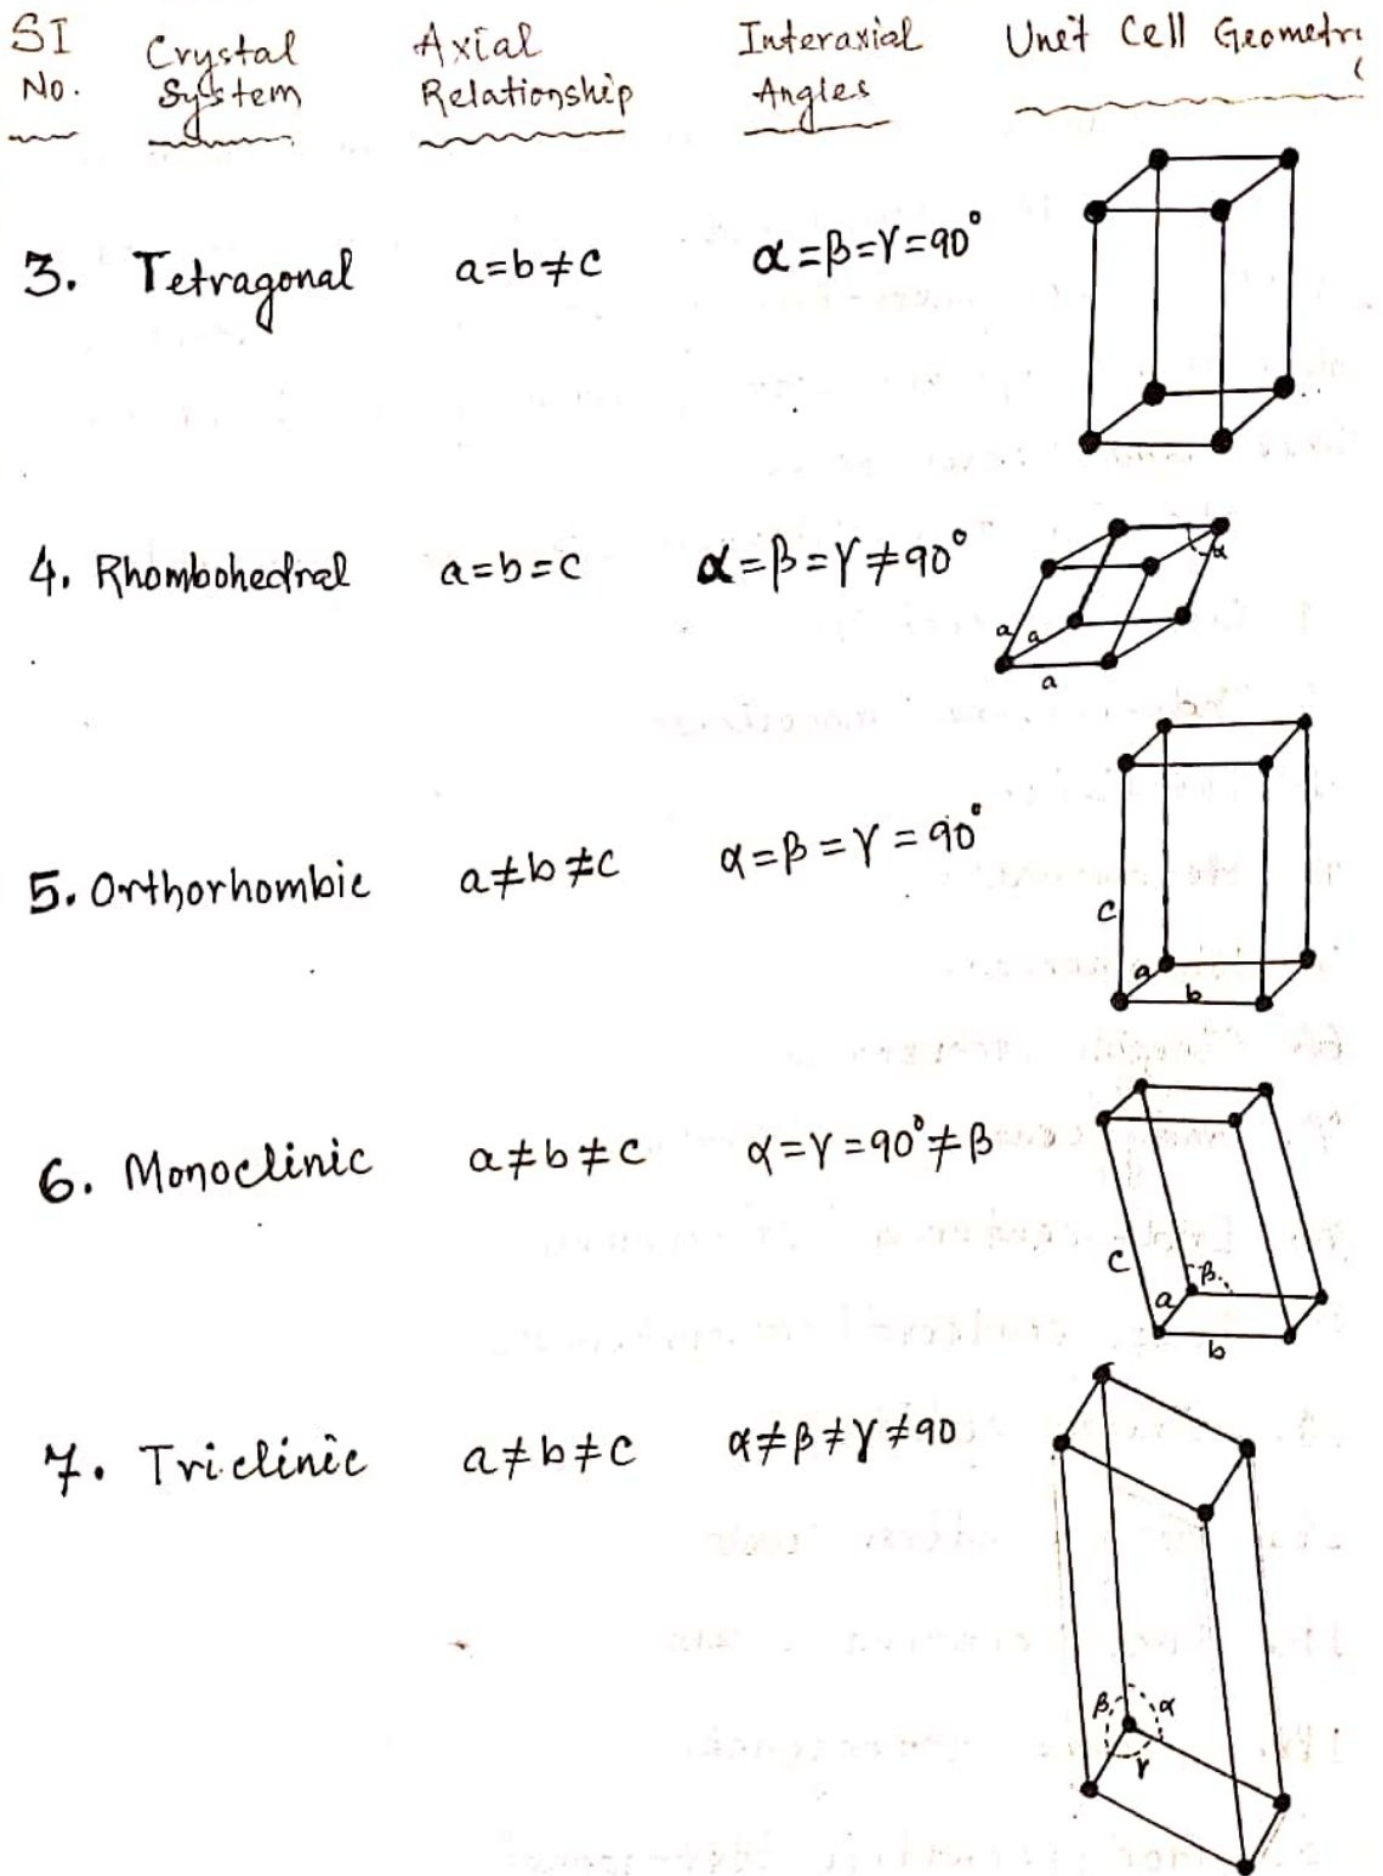 SI No. Crystal System Axial Relationship Interaxial Angles Unit Cell Geometri
3. Tetragonal a=b≠c α=β=γ=90°
4. Rhombohedral a=b=c α=β=γ≠90°
α
a a
a
5. Orthorhombic a≠b≠c α=β=γ=90°
c
a
b
6. Monoclinic a≠b≠c α=γ=90°≠β
c β
a
b
7. Triclinic a≠b≠c α≠β≠γ≠90
β α
γ